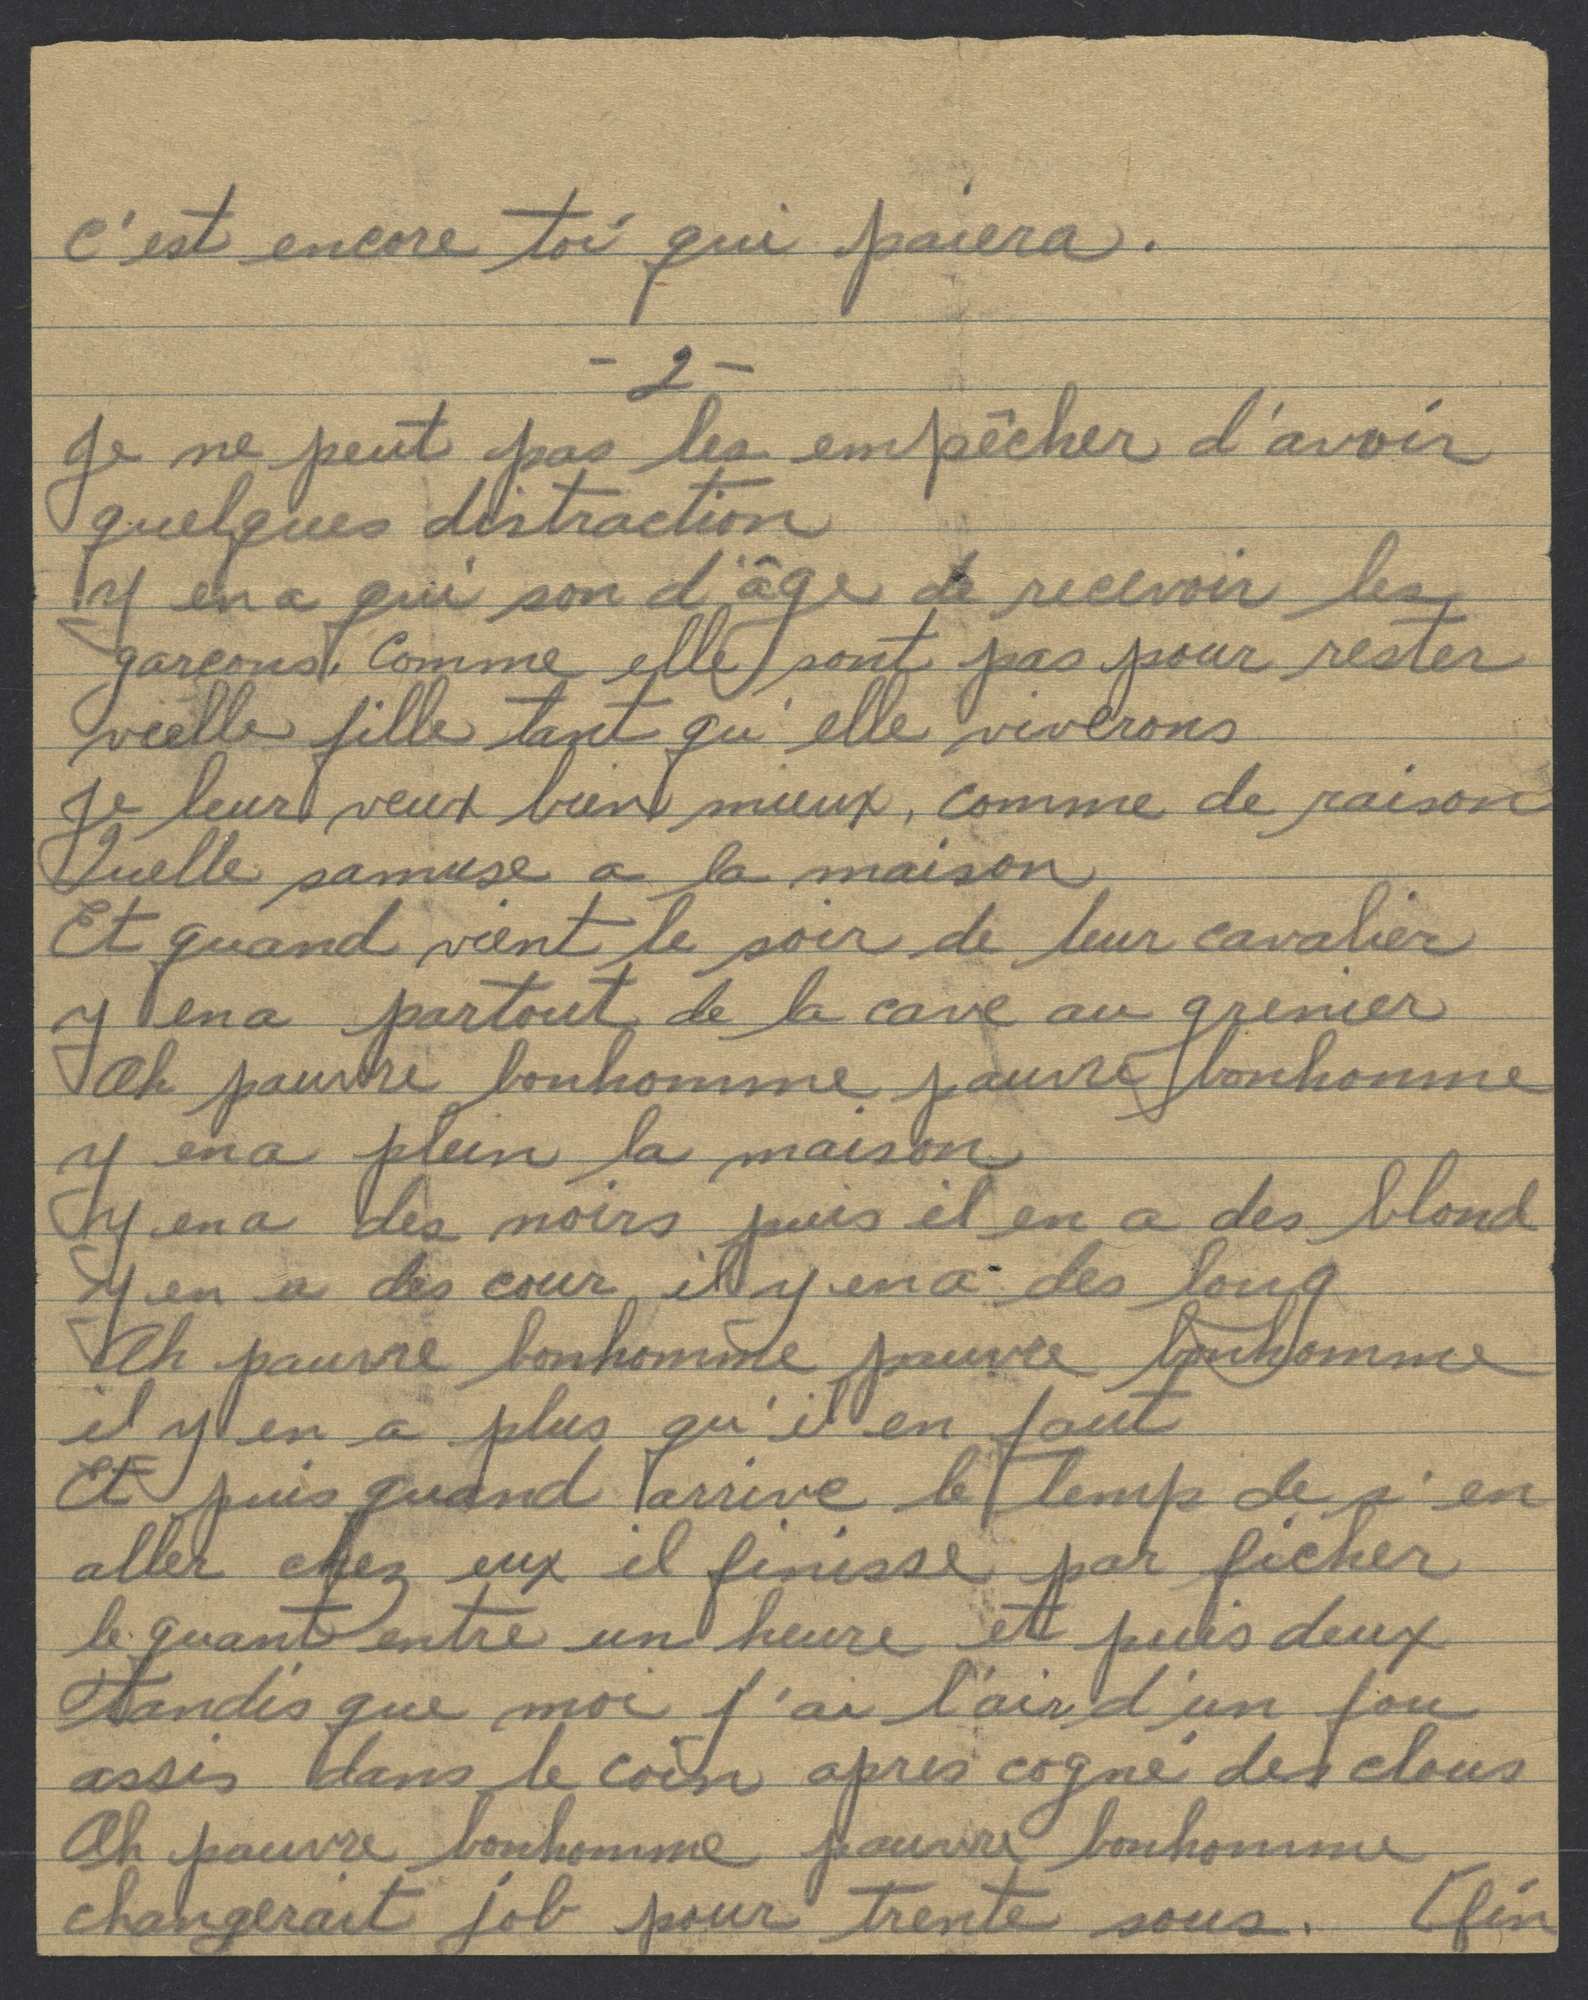 c'est encore toi qui paiera.
- 2 -
Je ne peut pas les empêcher d'avoir
quelques distraction
Y en a qui son d'âge de recevoir les
garçons, comme elle sont pas pour rester
vieille fille tant qu'elle viverons
Je leur veux bien mieux, comme de raison
Quelle samuse a la maison
Et quand vient le soir de leur cavalier
y en a partout de la cave au grenier
Ah pauvre bonhomme pauvre bonhomme
y en a plein la maison
Y en a des noirs puis il en a des blond
Y en a des cour il y en a des long
Ah pauvre bonhomme pauvre bonhomme
il y en a plus qu'il en faut
Et puis quand arrive le temp de s'en
aller chez eux il finisse par ficher
le quant entre un heure et puis deux
Tandis que moi j'ai l'air d'un fou
assis dans le coin apres cogné des clous
Ah pauvre bonhomme pauvre bonhomme
changerait job pour trente sous. (fin